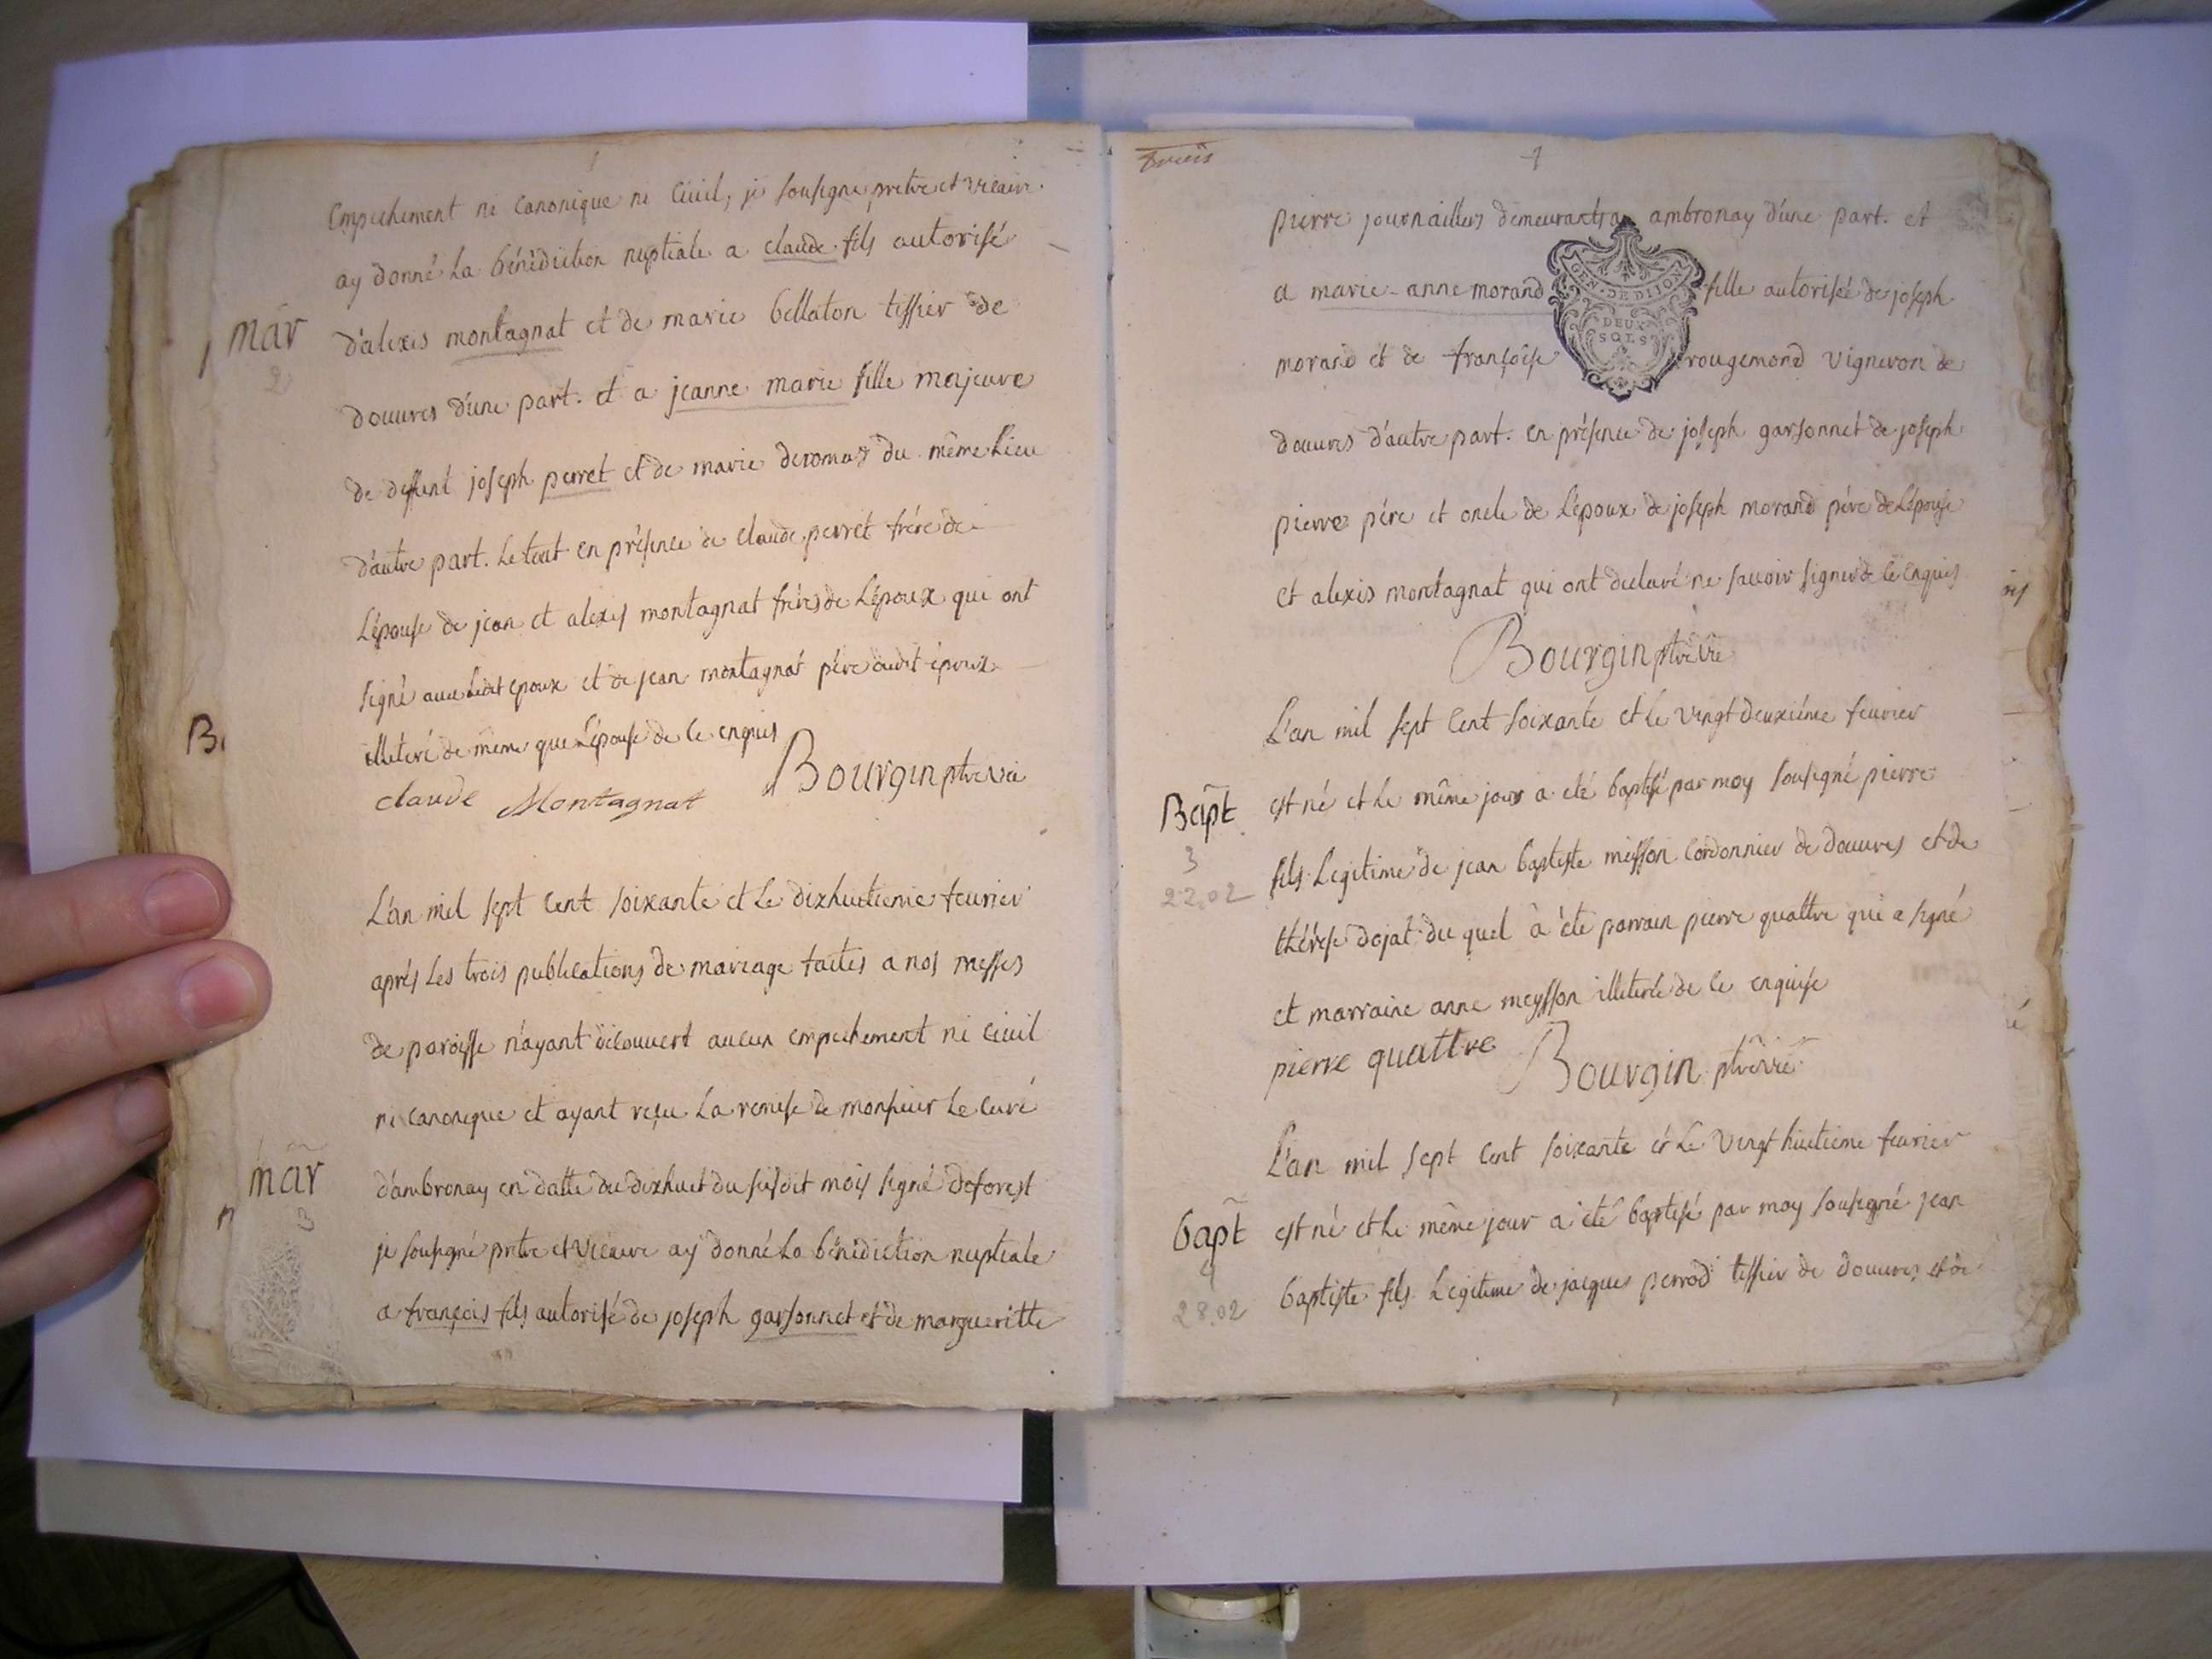 Empechement ni canonique ni Ciuil, je sousigne pretre et vicaire
ay donné La bénédiction nuptiale a claude fils autorisé
mar
2
d'alexis montagnat et de marie bellaton tissier de
douures d'une part. et a jeanne marie fille majeure
de deffunt joseph perret et de marie deromas du même Lieu
d'autre part. Le tout en présence de claude perret frére de
L'épouse de jean et alexis montagnat fréres de L'époux qui ont
signé auec Ledit epoux et de jean montagnat pére dudit époux
illiteré de même que L'épouse de ce enquis
B
claude Montagnat Bourgin ptre vic
L'an mil sept Cent soixante et Le dixhuitieme feurier
aprés Les trois publications de mariage faites a nos messes
de paroisse n'ayant découuert aucun empechement ni ciuil
ni canonique et ayant reçu La remise de monsieur Le curé
mar
3
d'ambronay en datte du dixhuit du susdit mois signé deforest
je sousigné pretre et vicaire ay donné La bénédiction nuptiale
a françois fils autorisé de joseph garsonnet et de margueritte
trois
pierre journailliers demeurants a ambronay d'une part. et
a marie-anne morand fille autorisée de joseph
GEN. DE DIJON
DEUX
SOLS
morand et de françoise rougemond Vigneron de
douures d'autre part. en présence de joseph garsonnet de joseph
pierre pére et oncle de L'époux de joseph morand pére de L'épouse
et alexis montagnat qui ont declaré ne sauoir signer de ce enquis
Bourgin ptre vic
L'an mil sept Cent soixante et Le vingt deuxiéme feurier
Bapt
3
22.02
est né et Le même jour a été baptisé par moy sousigné pierre
fils Legitime de jean baptiste meysson Cordonnier de douures et de
thérese dojat du quel à été parrain pierre quattre qui a signé
et marraine anne meysson illiterée de ce enquise
pierre quattre Bourgin ptre vic
L'an mil sept Cent soixante et Le vingt huitieme feurier
bapt
4
28.02
est né et Le même jour a été baptisé par moy sousigné jean
baptiste fils Legitime de jacques perrod tissier de douures et de